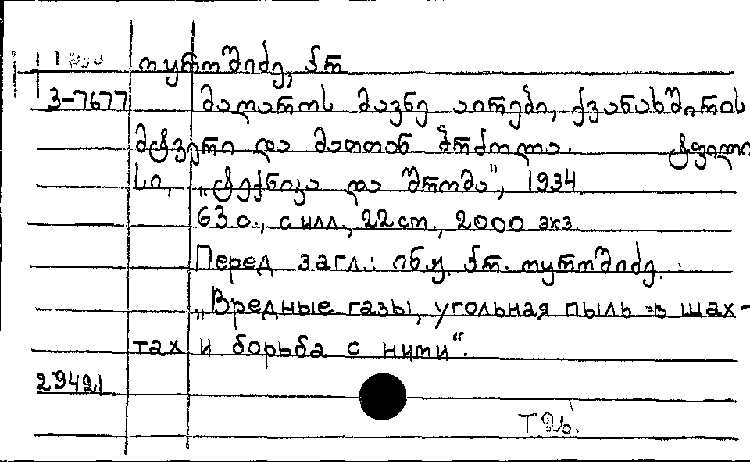 თუროშიძე, ქრ
3-7677 მაღაროს მავნე აირები, ქვანახშირის
მტვერი და მათთან ბრძოლა. ტფილი
სი, „ტექნიკა და შრომა", 1934
63 с., с илл., 22 cm, 2000 экз.
Перед загл.: ინჟ. ქრ. თუროშიძე.
„Вредные газы, угольная пыль в шах-
тах и борьба с ними".
29421